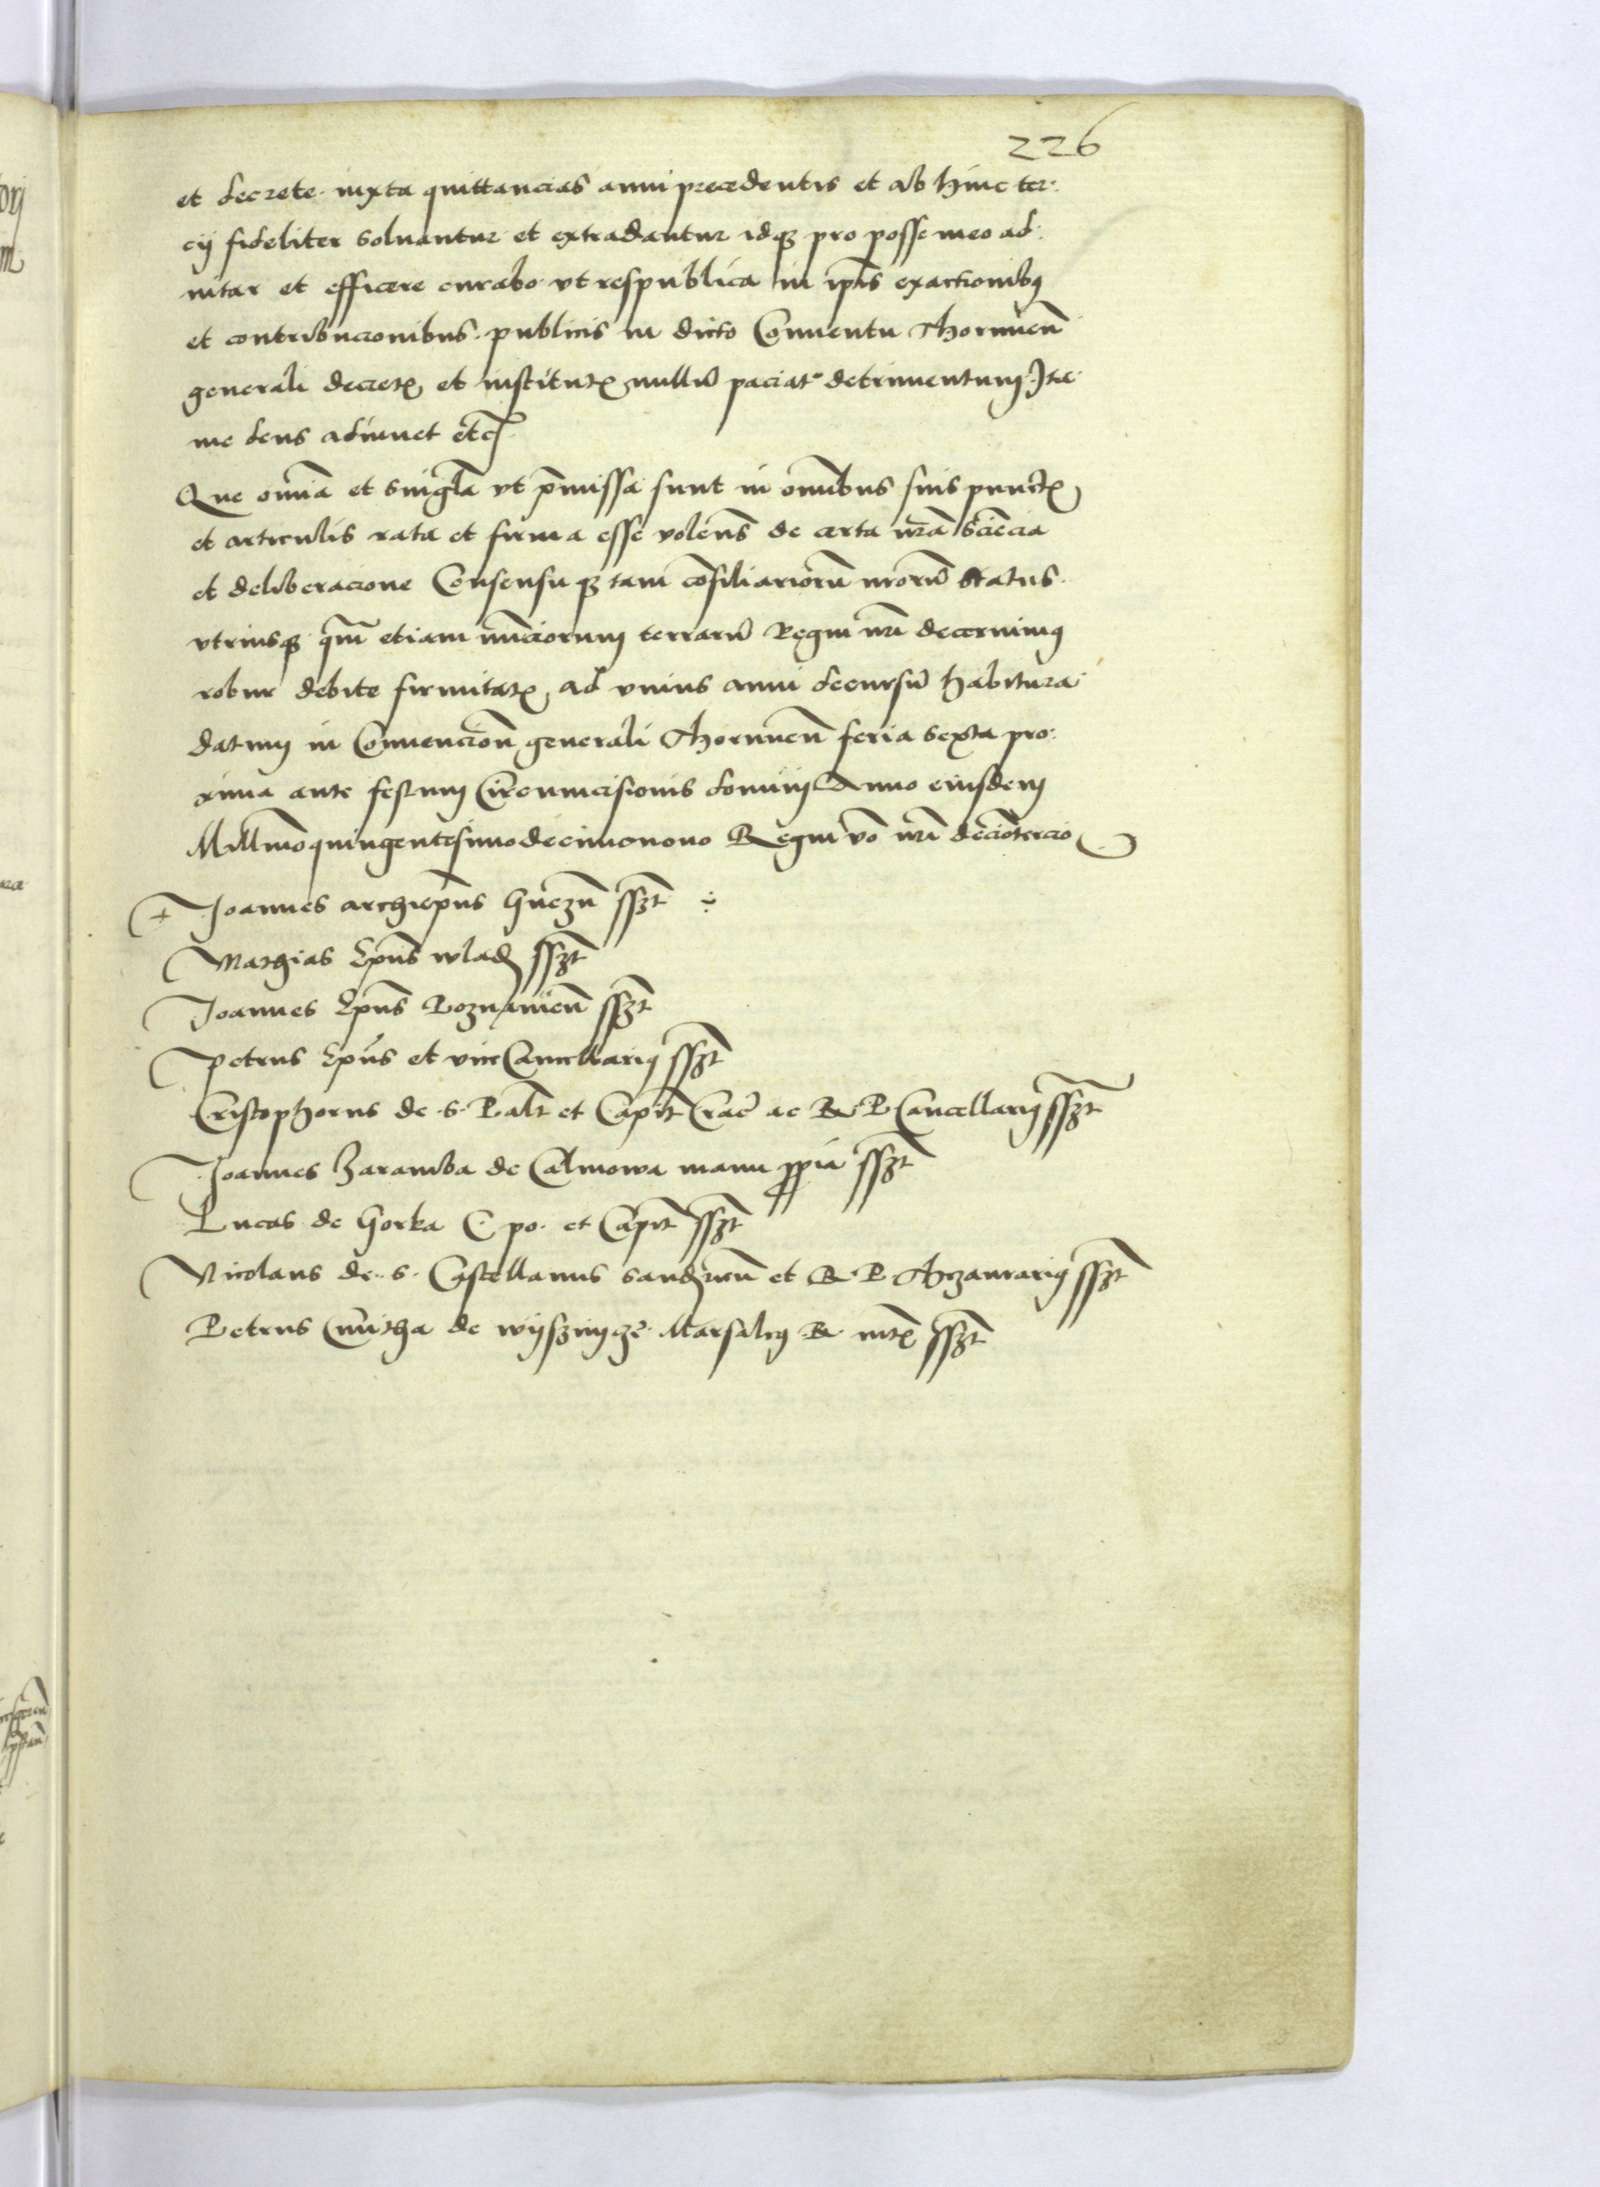 226
et decrete iuxta quittancias anni precedentis et ab hinc ter:
cij fideliter soluantur et extradantur idqȝ pro posse meo ad:
nitar et efficere curabo vt respublica in ip̄is exactionibꝯ
et contribucionibus publicis in dicto Conuentu Thoruneñ
generali decretꝭ et institutꝭ nullū paciatᵉ detrimentum Ita
me deus adiuuet etcȝ
Que om̄ia et singl̄a vt p̄missa sunt in om̄ibus suis punctꝭ
et articulis rata et firma esse volens̄ de certa nr̄a sciēcia
et deliberacione Consensuqȝ tam cōsiliariorū nrorū status
vtriusqȝ qm̄ etiam nūnciorum terrarū Regni nrī decernimꝯ
robur debite firmitatꝭ ad vnius anni decursū habitura
datum in Conuencioñ generali Thoruneñ feria sexta pro:
xima ante festum Circumcisionis domini Anno eiusdem
Millm̄oquingentesimodecimonono Regni vō nrī deciotercio
Joannes archiep̄us Gnezn̄ sszt
Mathias Ep̄us wlad sszt
Joannes Ep̄us Poznanieñ sszt
Petrus Ep̄us et viceCancellariꝯ sszt
Cristophorus de S. Palt et Capit Crac̄ ac R. P. Cancellariꝯ sszt
Joannes Zaramba de Calinowa manu ꝓpria sszt
Lucas de Gorka C. po. et Capit sszt
Nicolaus de S. Castellanus sandzieñ et R. P. Thezaurariꝯ sszt
Petrus Cmitha de wijsznijcze Marsalcꝯ R. sszt